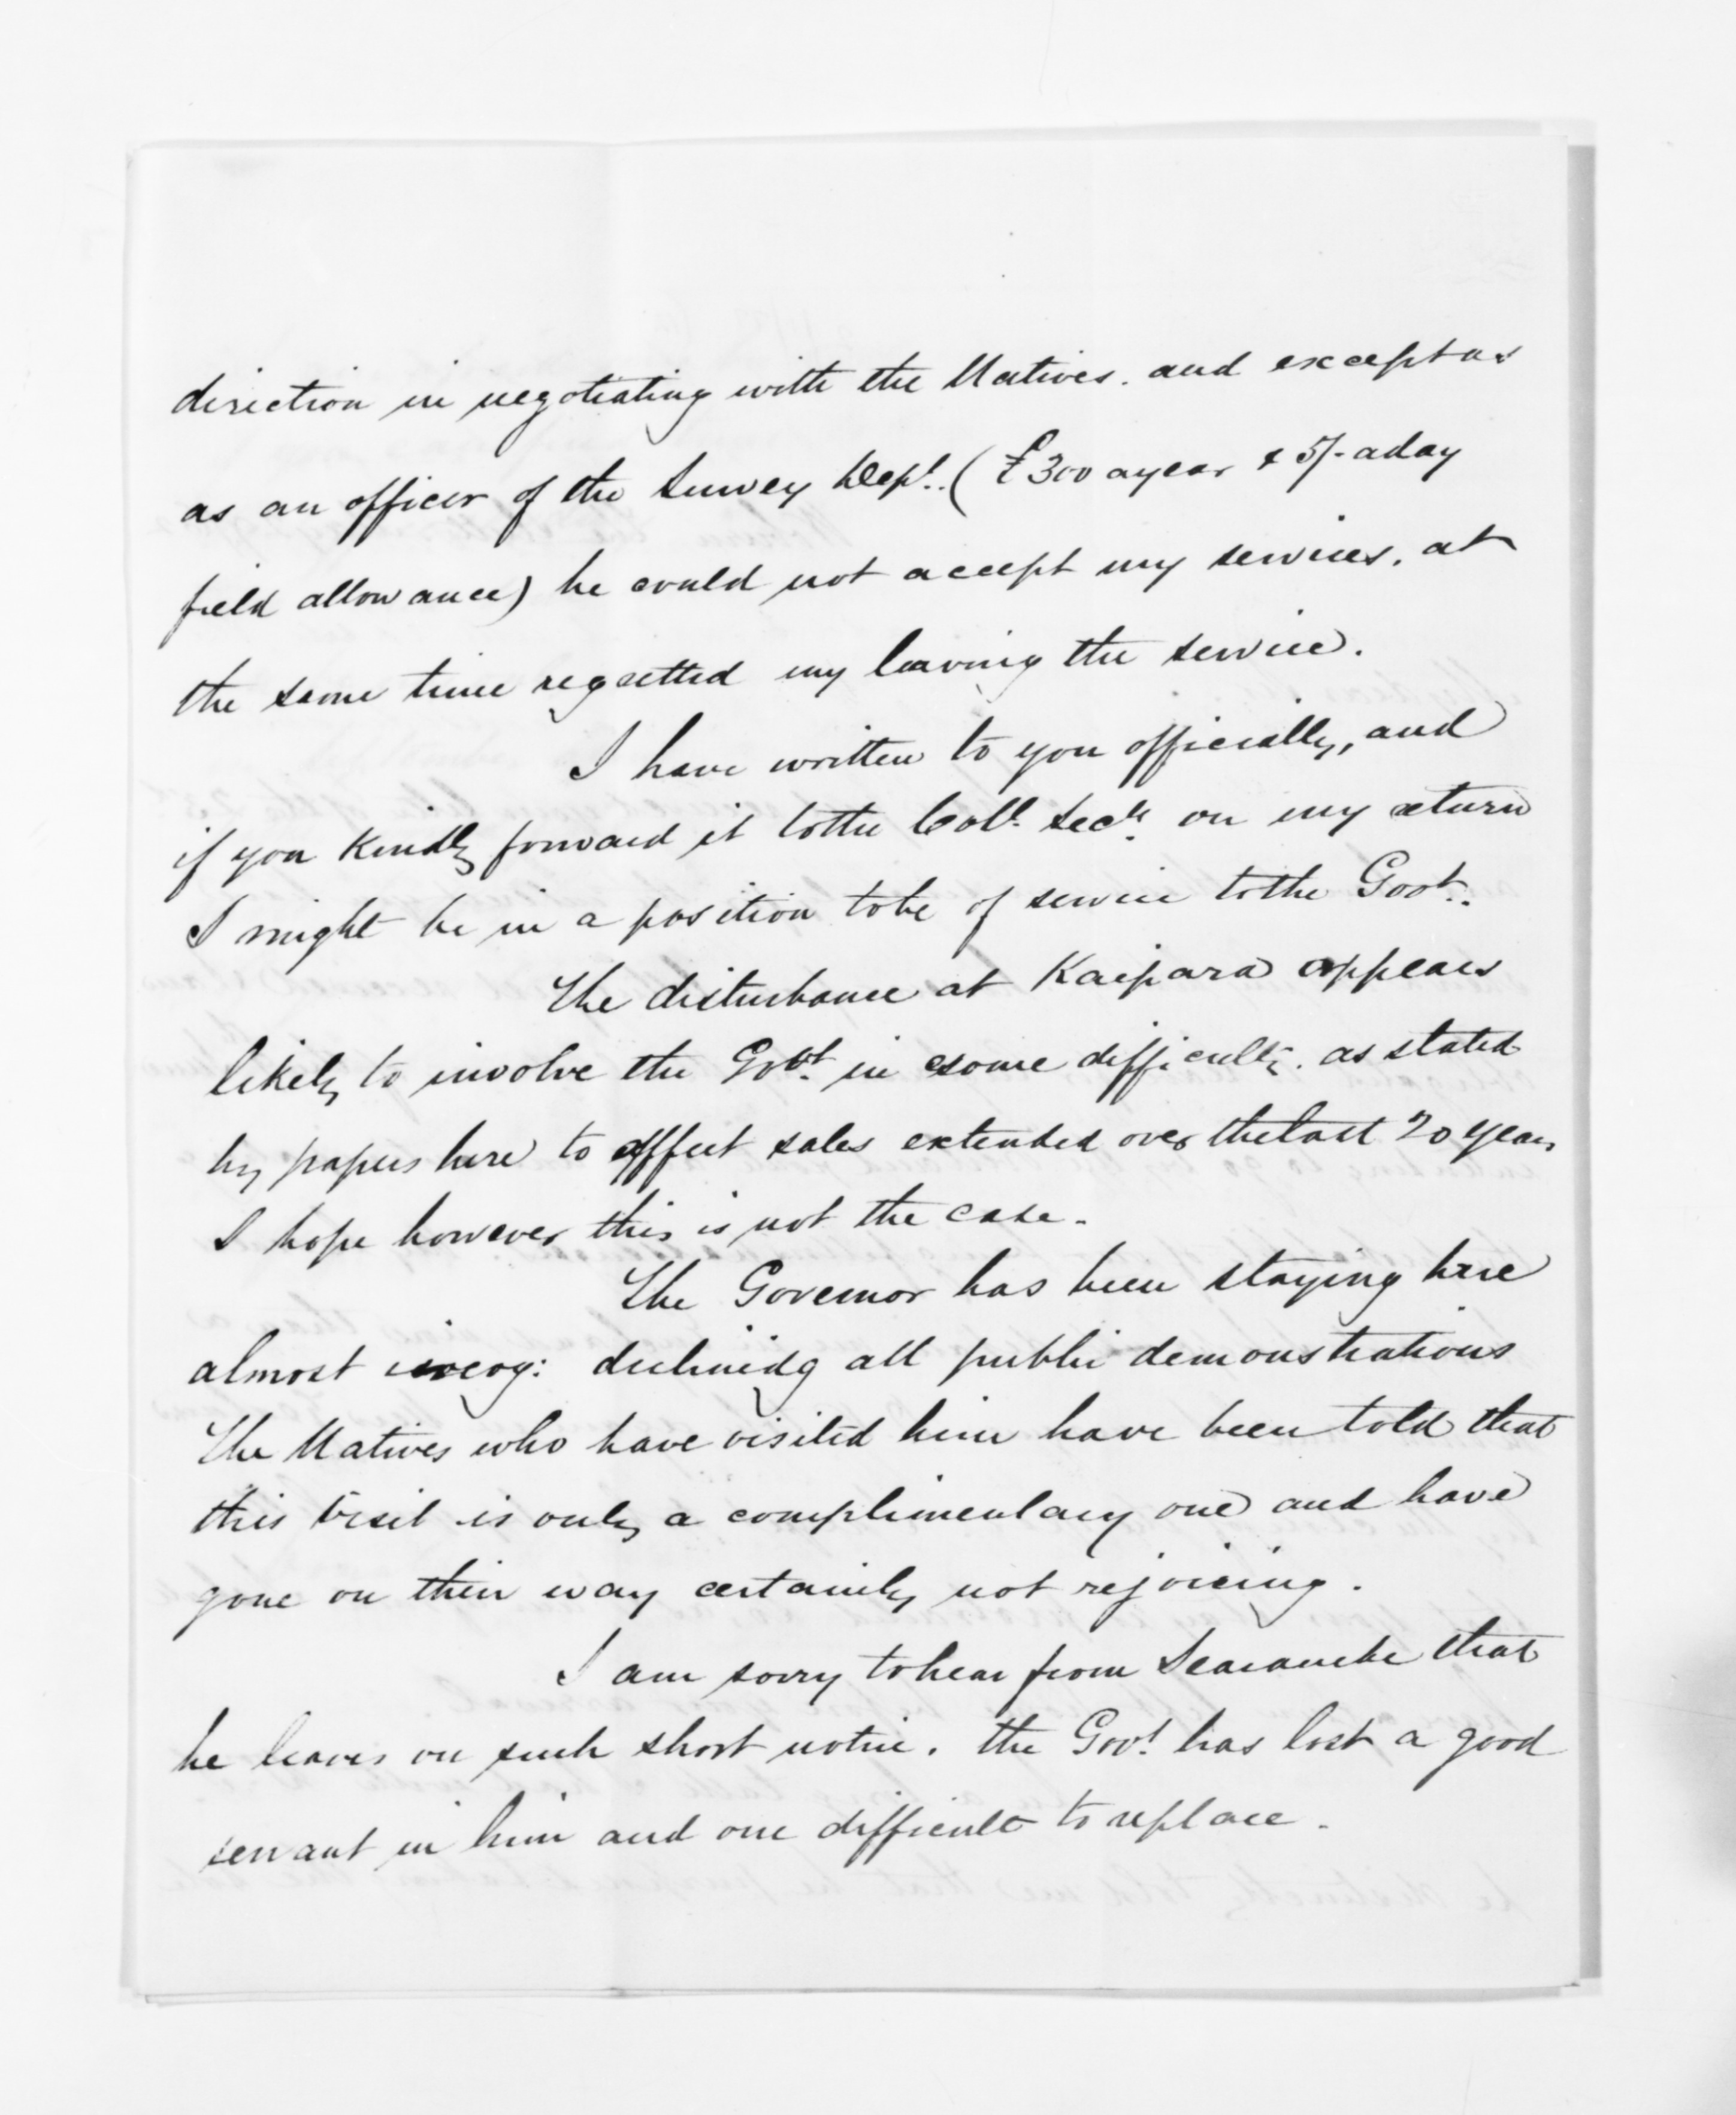 direction in negotiating with the Natives. and except as
as an officer of the Survey Dept. (£300 a year & 5/- a day
field allowance) he could not accept my services. at
the same time regretted my leaving the service.
I have written to you officially, and
if you kindly forward it to the Coll. Secy. on my return
I might be in a position to be of service to the Govt..
The disturbance at Kaipara appears
likely to involve the Govt. in some difficulty. as stated
by papers here to affect sales extended over the last 20 years
I hope however this is not the case.
The Governor has been staying here
almost incog: declining all public demonstrations
The Natives who have visited him have been told that
this visit is only a complimentary one and have
gone on their way certainly not rejoicing.
I am sorry to hear from Searancke that
he leaves on such short notice. the Govt. has lost a good
servant in him and one difficult to replace.